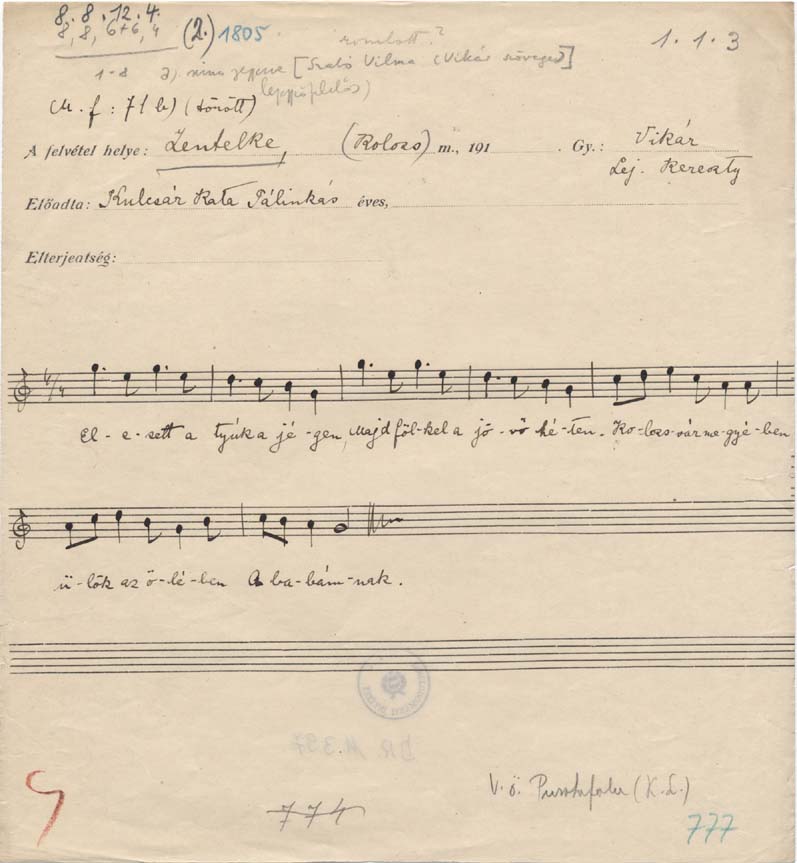 8. 8. 12. 4.
8, 8, 6+6, 4 (2.) 1805 romlott? 1. 1. 3
1-8 [Szabó Vilma (Vikár szöveges)]
M. f : 71 b) (törött)
A felvétel helye: Zentelke, (Kolozs) m., 191 . Gy.: Vikár
Lej. Kereszty
Előadta: Kulcsár Kata Pálinkás éves,
Elterjeatség:
4/4
El - e - sett a tyúk a jé - gen, Majd föl - kel a jö - vő hé - ten. Ko - lozs - vár me - gyé - ben
ü - lök az ö - lé - ben A ba - bám - nak.
DR. M 397
V. ö. Pusztafalu (K. L.)
774
777